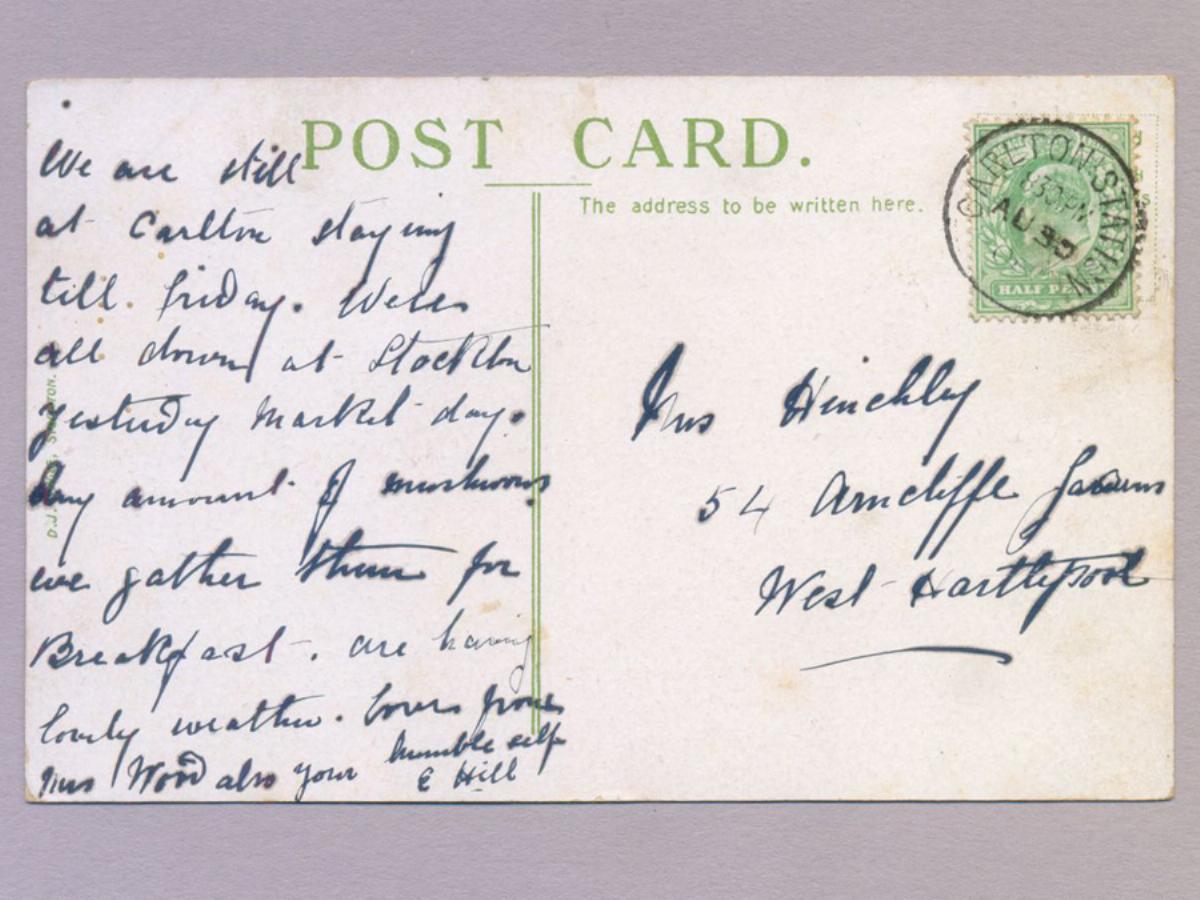 POST CARD.
The address to be written here.
We are still
at Carlton staying
till friday. Were
all down at Stockton
yesterday market day.
Any amount of mushrooms
we gather them for
Breakfast. are having
lovely weather. Loves from
Mrs Wood also your humble self
E Hill
Mrs Hinchley
54 Arncliffe Gardens
West Hartlepool
CARLTON STATION
8 30 PM
AU 30
HALF PE
D.J.